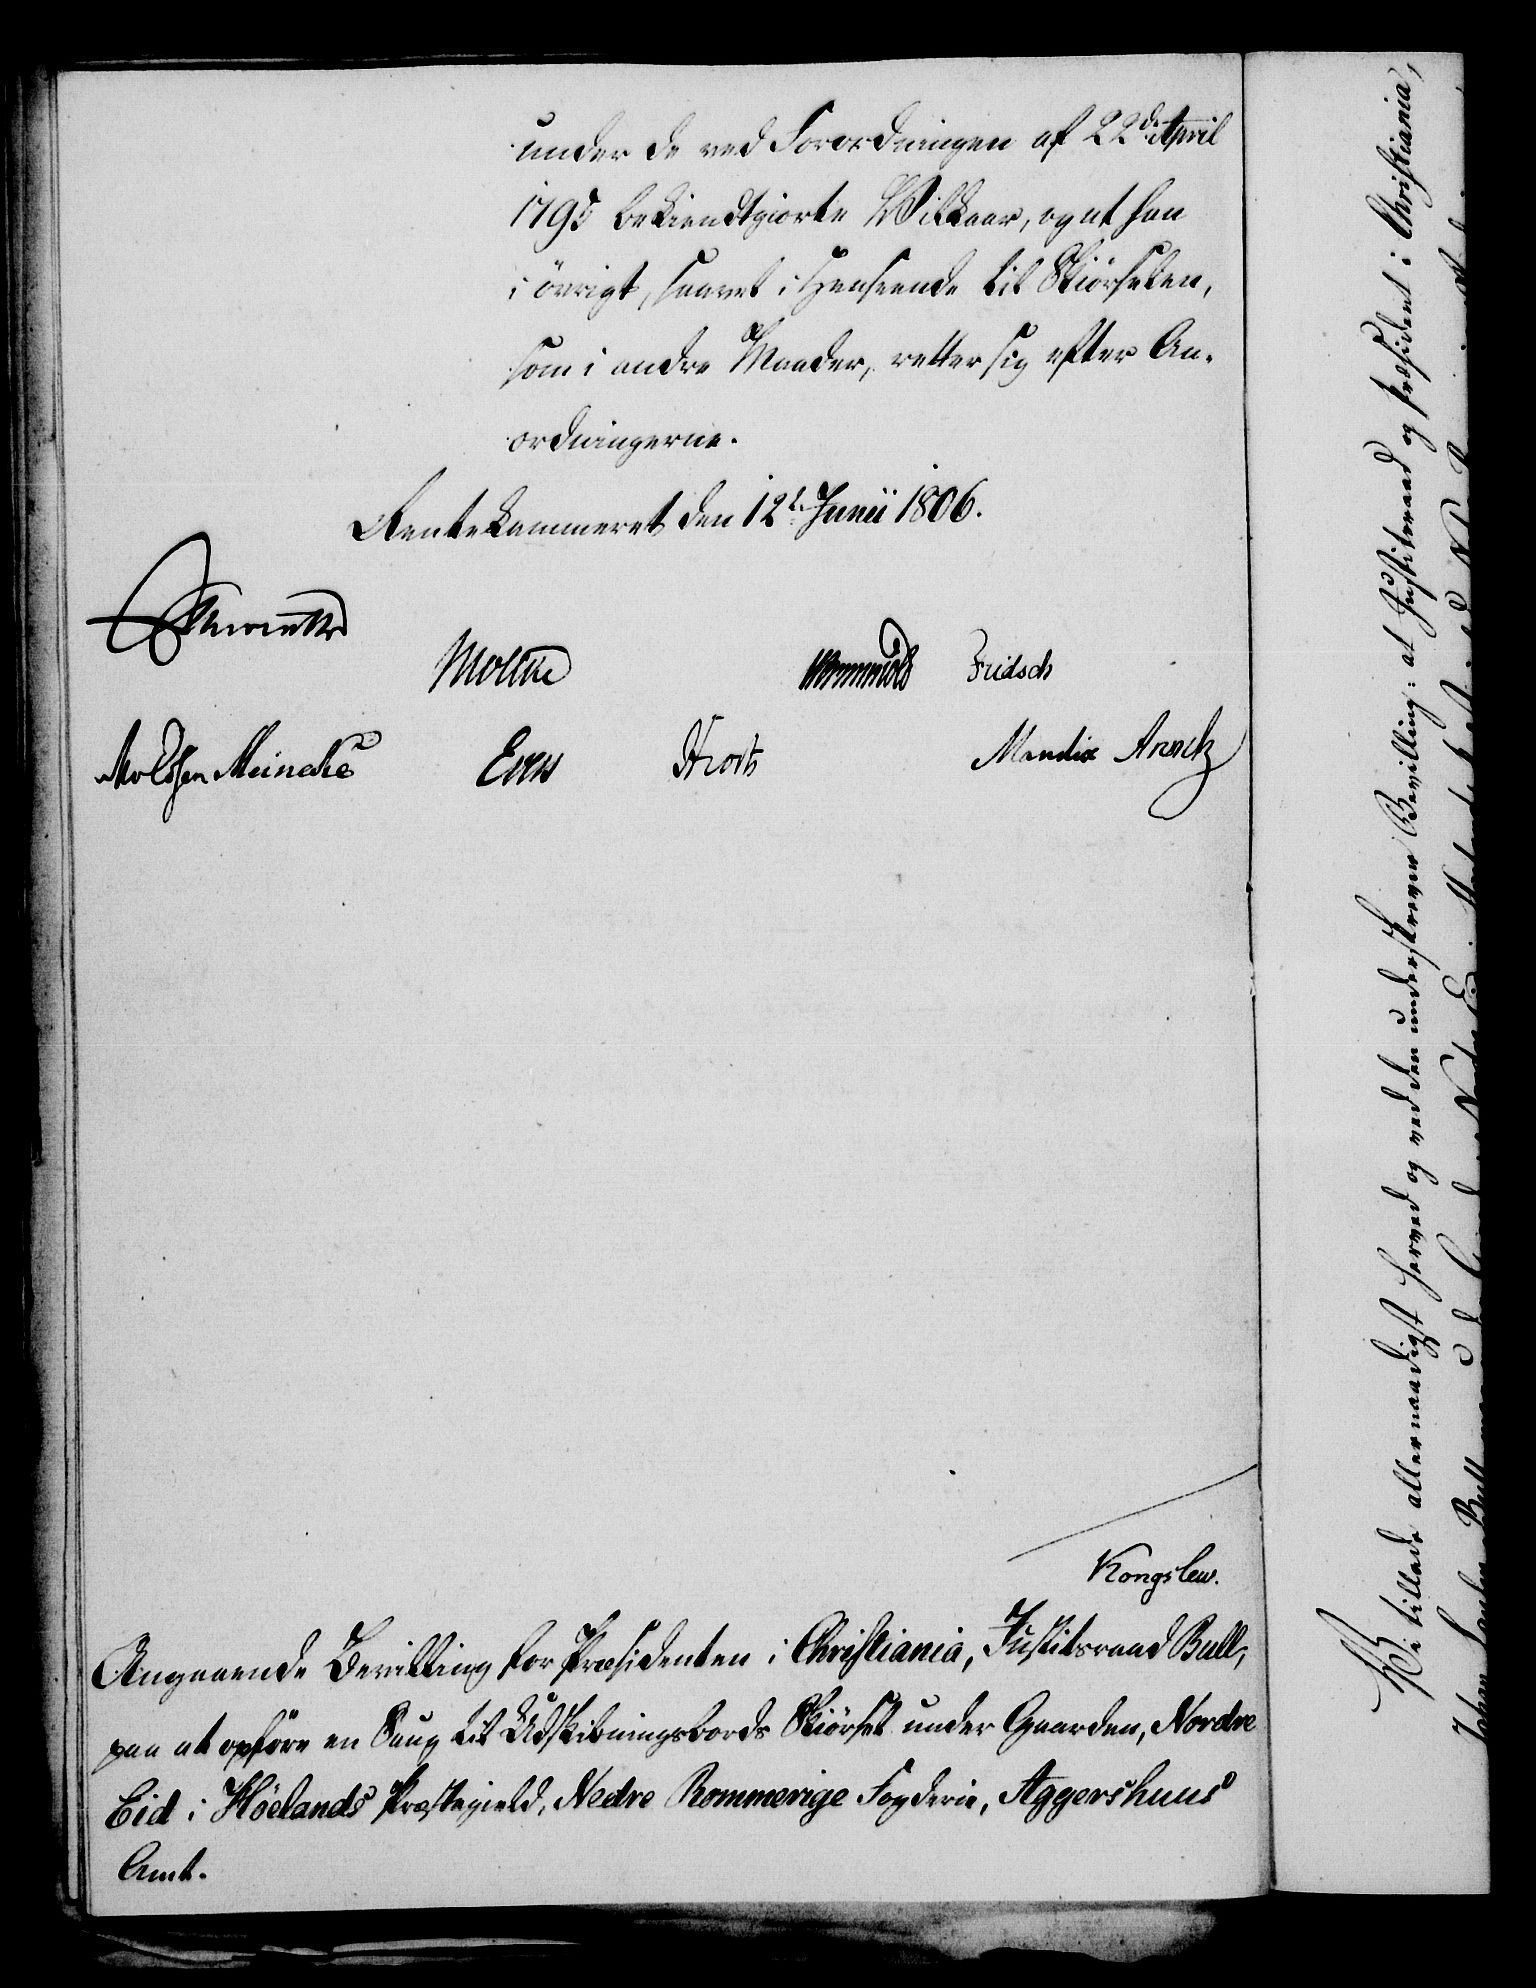 under de ved Forordningen af 22de April
1795 bekiendtgiorte Vilkaar, og at han
i övrigt, saavel i Henseende til Skiörselen,
som i andre Maader, retter sig efter An-
ordningerne.
Rentekammeret den 12te Junii 1806.
Reventlow
Moltke
Wormskiold
Fridsch
Meinche
Mandix
Kongslew.
Angaaende Bevilling for Præsidenten i Christiania, Justitsraad Bull,
paa at opföre en Saug til Udskibningsbords Skiörsel under Gaarden, Nordre
Eid i Höelands Præstegield, Nedre Rommerige Fogderie, Aggershuus
Amt.
Vi tillade allernaadigst herved og ved den underskreven Bevilling: at Justitsraad og Præsident i Christiania,